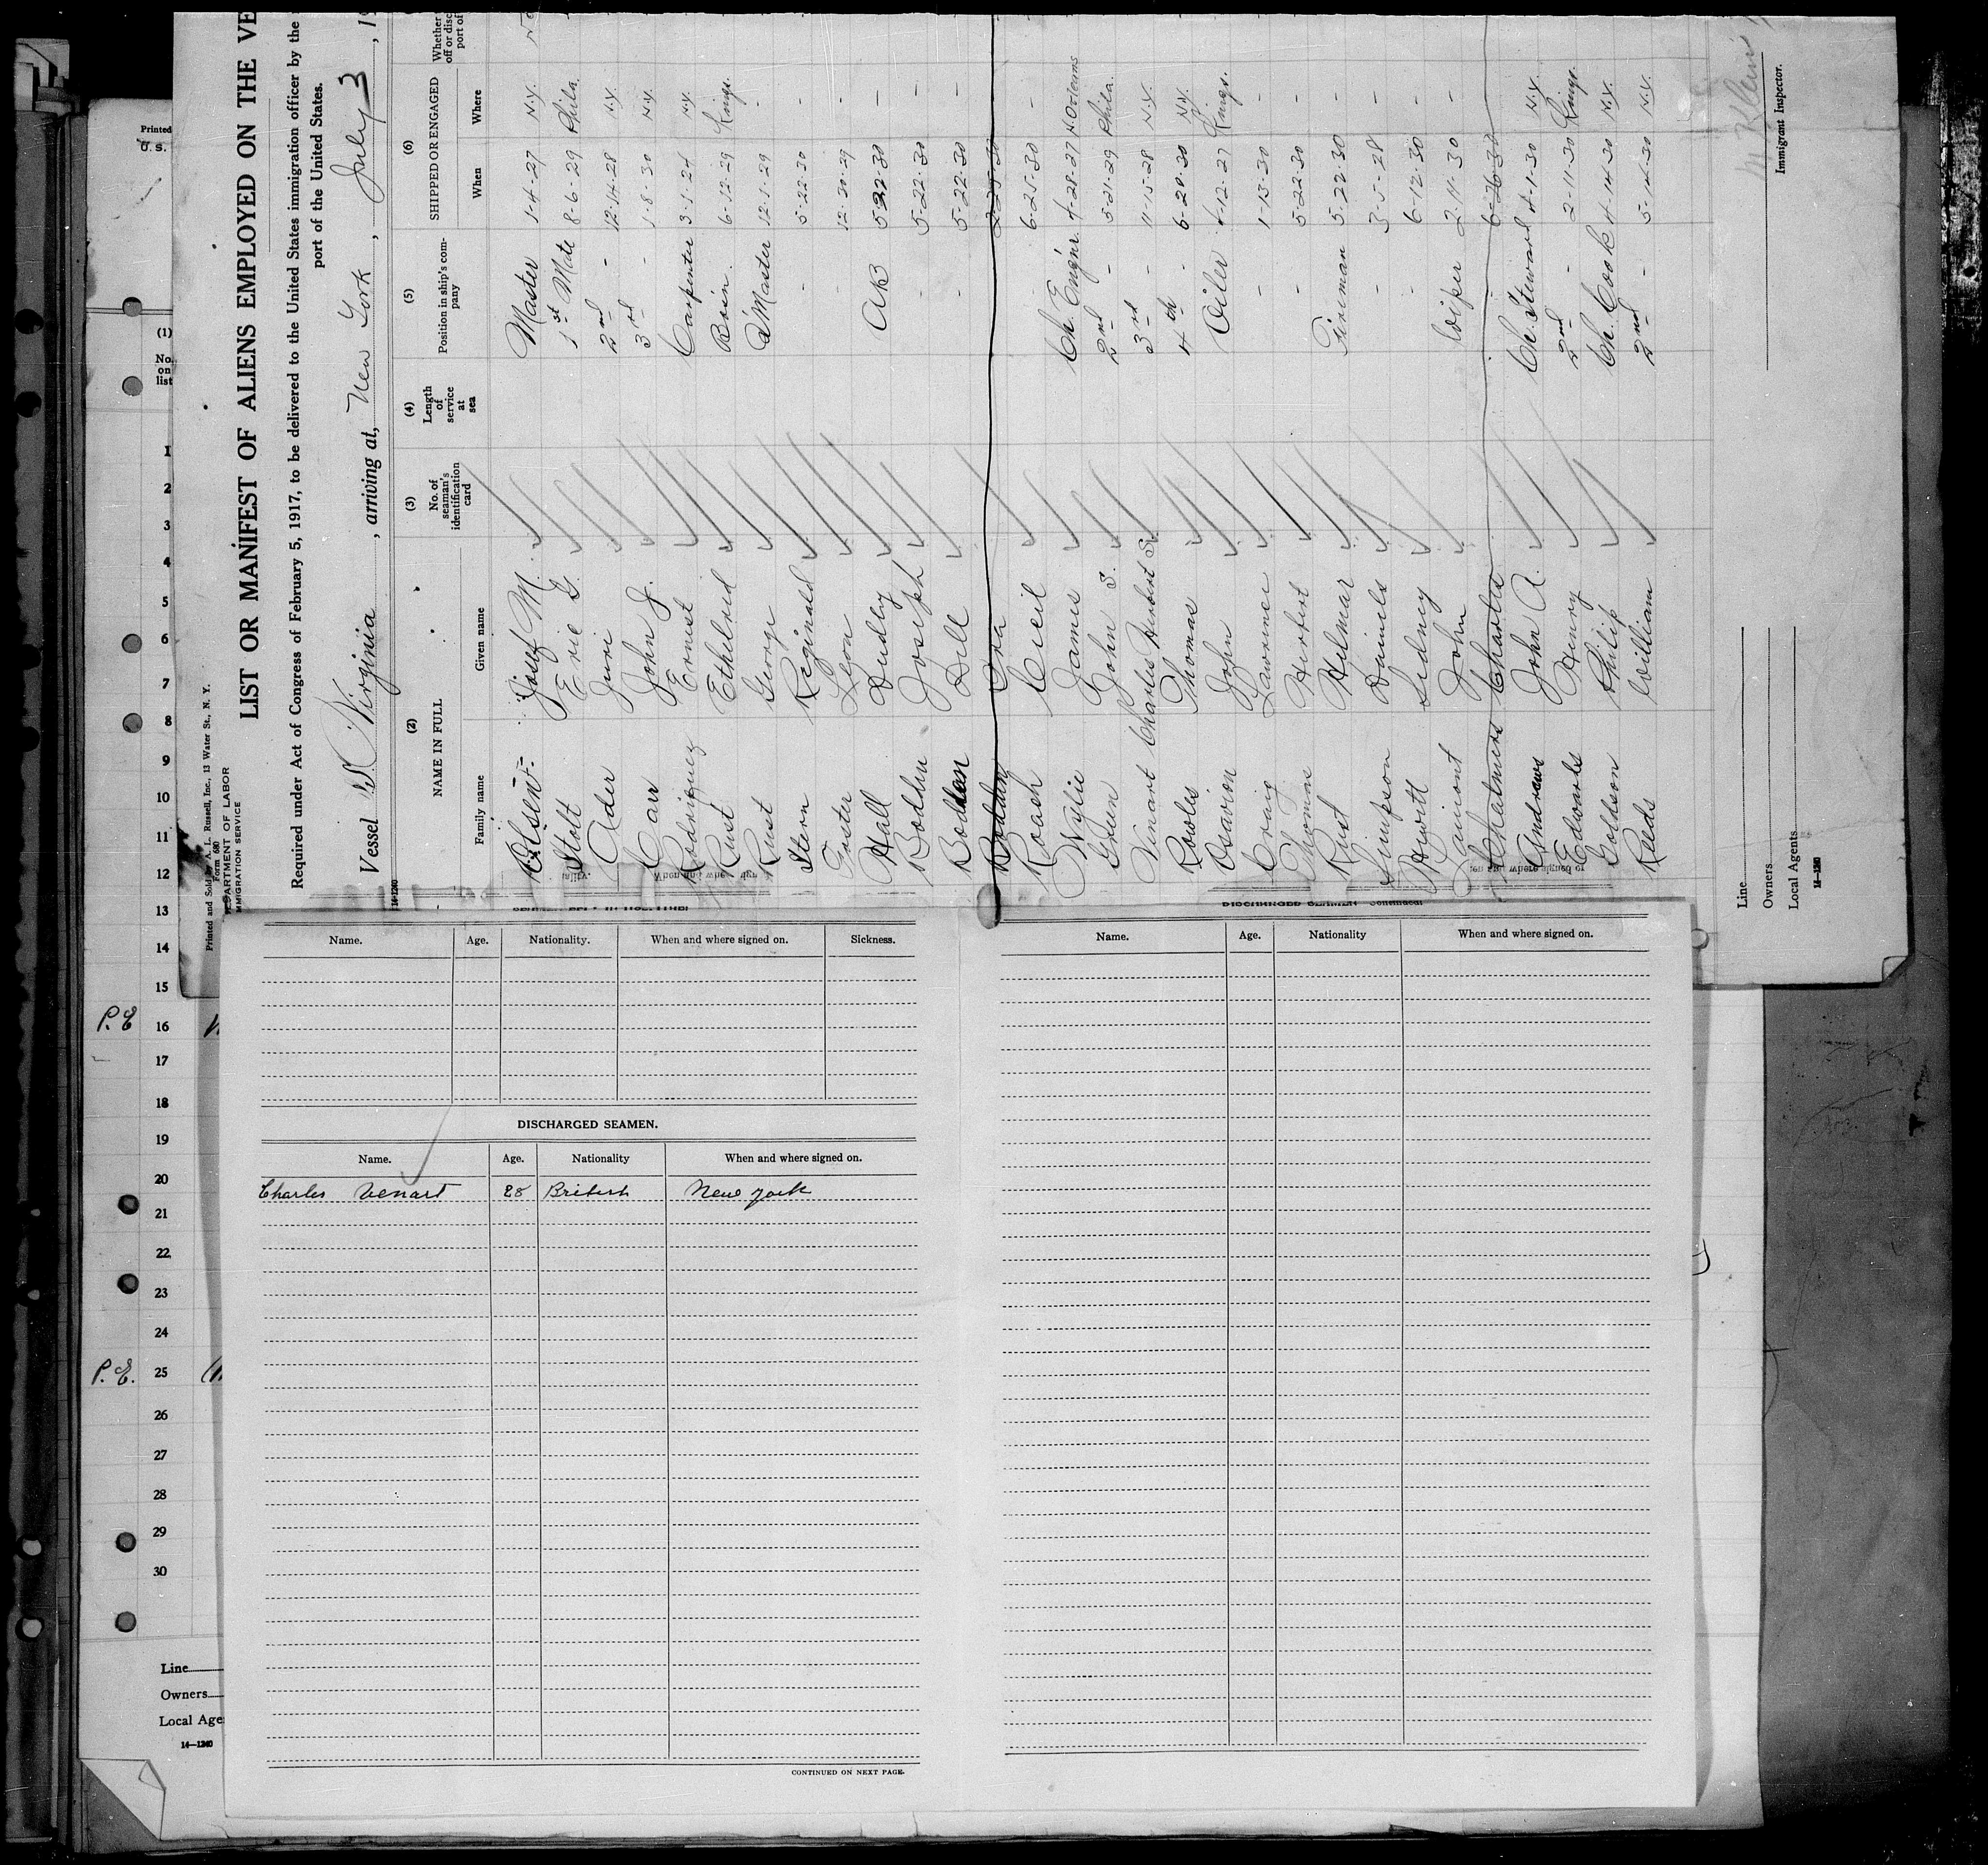 Printed
U. S.
(1)
No.
on
list
1
2
3
4
5
6
7
8
9
10
11
12
13
14
15
P.E. 16
17
18
19
20
21
22
23
24
P.E. 25
26
27
28
29
30
Line
Owners
Local Age
14—1240
Printed and Sold by A. L. Russell, Inc., 13 Water St., N. Y.
Form 680
DEPARTMENT OF LABOR
IMMIGRATION SERVICE
LIST OR MANIFEST OF ALIENS EMPLOYED ON THE VE
Required under Act of Congress of February 5, 1917, to be delivered to the United States immigration officer by the
port of the United States.
Vessel S.S. Virginia, arriving at, New York, July 3, 19
(2) (3) (4) (5) (6)
NAME IN FULL
No. of seaman's identification card
Length of service at sea
Position in ship's company
SHIPPED OR ENGAGED
Whether
off or disc
port of
Family name Given name When Where
Olsen Josef M. Master 1-4-27 N.Y.
Stolt Eric G. 1st Mate 8-6-29 Phila.
Ader Juri 2nd - 12-14-28 N.Y.
Carr John J. 3rd - 1-8-30 N.Y.
Rodriquez Ernest Carpenter 3-1-24 N.Y.
Rust Ethelred Bosn. 6-12-29 Kings.
Rust George Q Master 12-1-29 -
Stern Reginald - 5-22-30 -
Foster Leon - 12-20-29 -
Hall Dudley AB 5-22-30 -
Bodden Joseph - 5-22-30 -
Bodden Dell - 5-22-30 -
Bodden Ora 2-25-30 -
Roach Cecil 6-25-30 -
Wylie James Ch. Engnr. 4-28-27 N. Orleans
Green John S. 2nd - 5-21-29 Phila.
Venart Charles Herbert S. 3rd - 11-15-28 N.Y.
Rowles Thomas 4th - 6-28-30 N.Y.
Osavion John Oiler 4-12-27 Kings.
Craig Lawrence - 1-13-30 -
Thomas Herbert - 5-22-30 -
Rust Hilmar Fireman 5-22-30 -
Simpson Daniels - 3-5-28 -
Hewitt Sidney - 6-12-30 -
Lamont John Wiper 2-11-30 -
Chalmers Charles 6-26-30
Andrews John A. Ch. Steward 4-1-30 N.Y.
Edwards Henry 2nd - 2-11-30 Kings.
Goldson Philip Ch. Cook 4-14-30 N.Y.
Reeds William 2nd - 5-14-30 N.Y.
Line
Owners
Local Agents
14—1240
Immigrant Inspector.
Name. Age. Nationality. When and where signed on. Sickness.
DISCHARGED SEAMEN.
Name. Age. Nationality When and where signed on.
Charles Venart 28 British New York
CONTINUED ON NEXT PAGE.
DISCHARGED SEAMEN—Continued
Name. Age. Nationality When and where signed on.